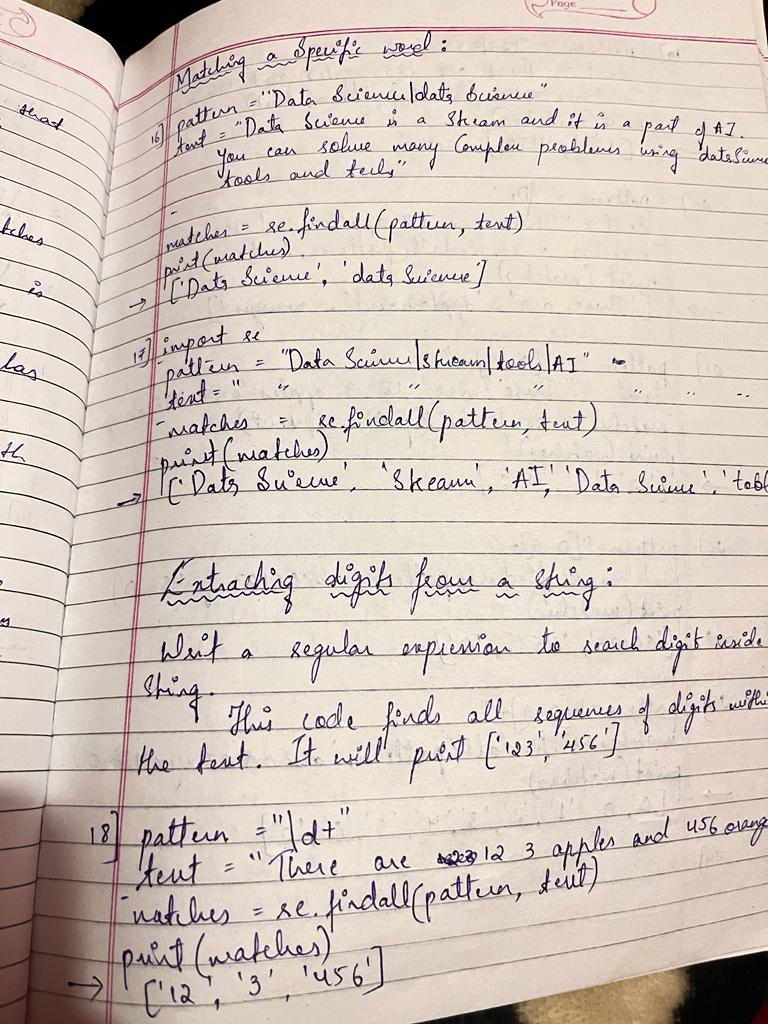 Page
that
tches
is
las
th
Matching a Specific word:
16] pattern = "Data Science|data Science"
text = "Data Science is a Stream and it is a part of AI.
You can solve many Complex problems using data Science
tools and techs"
matches = re.findall(pattern, text)
print(matches)
→ ['Data Science', 'data Science']
17] import re
pattern = "Data Science|stream|tools|AI"
text = " " " " " "
matches = re.findall(pattern, text)
print(matches)
→ ['Data Science', 'Stream', 'AI', 'Data Science', 'tool
Extracting digits from a string:
Writ a regular expression to search digit inside
string.
This code finds all sequences of digits withi
the text. It will print ['123', '456']
18] pattern = "|d+"
text = "There are 12 3 apples and 456 orang
matches = re.findall(pattern, text)
print(matches)
→ ['12', '3', '456']